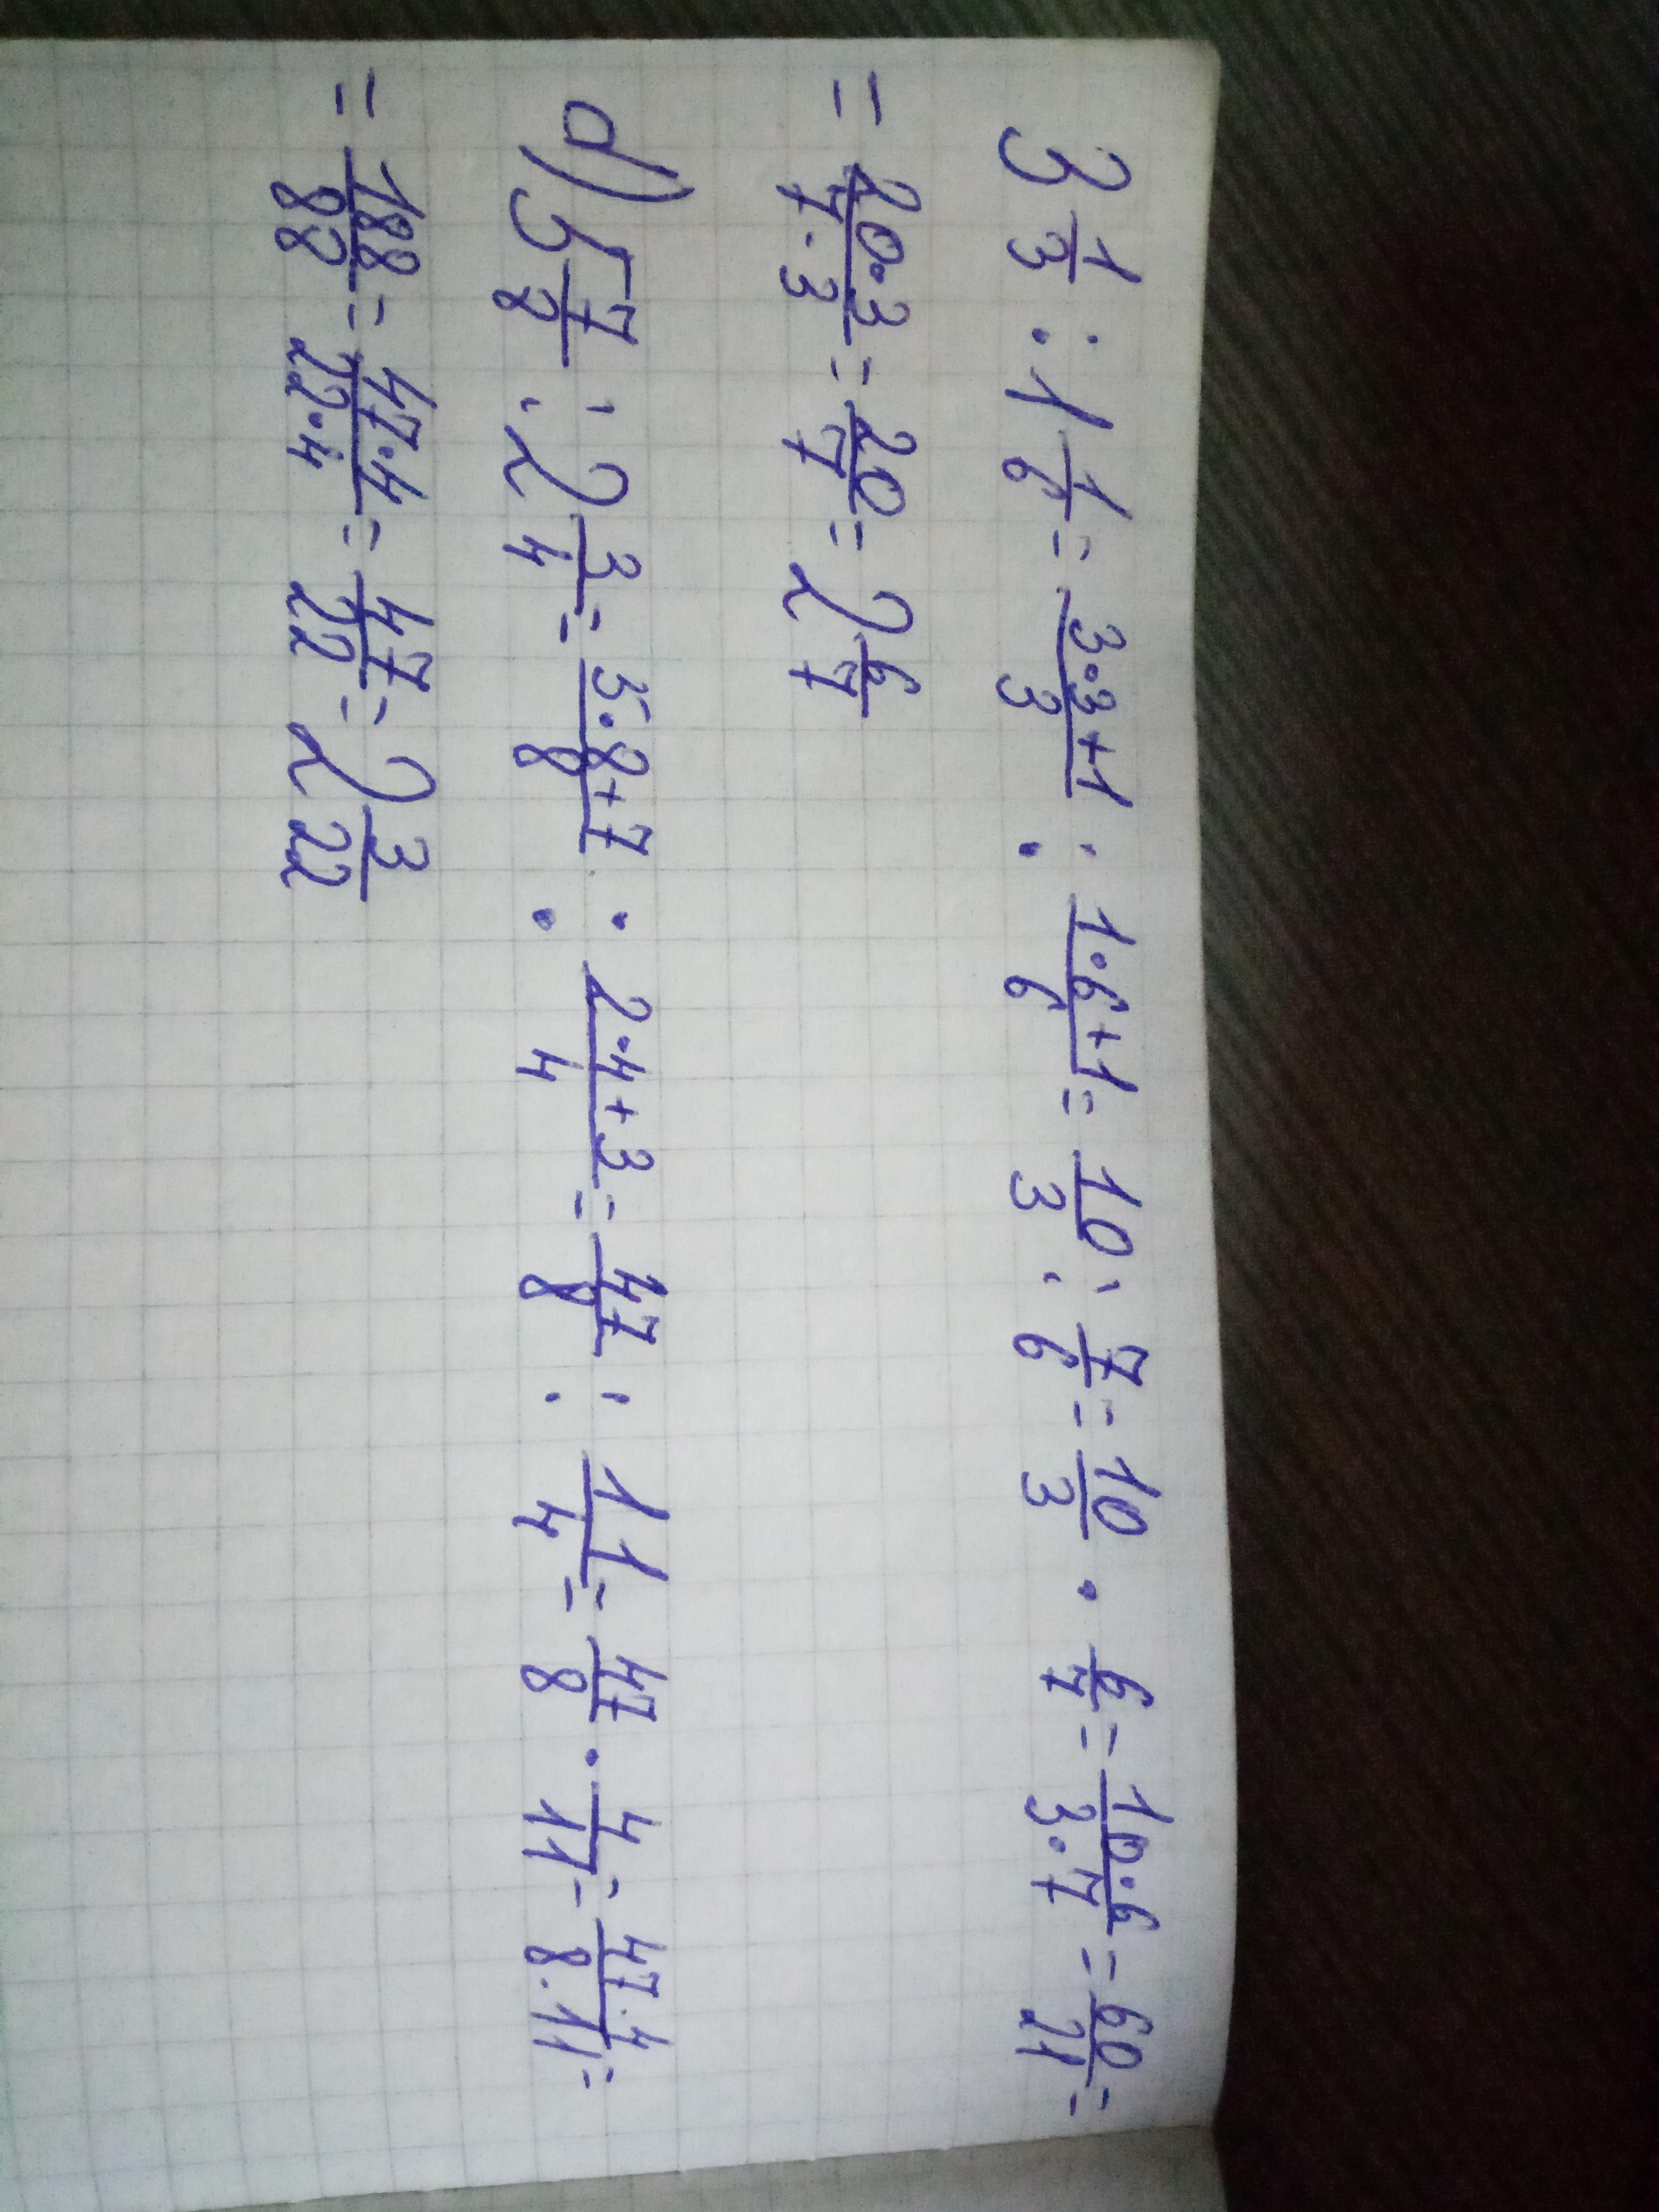 3 1/3 : 1 1/6 = (3·3+1)/3 : (1·6+1)/6 = 10/3 : 7/6 = 10/3 · 6/7 = (10·6)/(3·7) = 60/21 =
= (20·3)/(7·3) = 20/7 = 2 6/7
d) 5 7/8 : 2 3/4 = (5·8+7)/8 : (2·4+3)/4 = 47/8 : 11/4 = 47/8 · 4/11 = (47·4)/(8·11) =
= 188/88 = (47·4)/(22·4) = 47/22 = 2 3/22